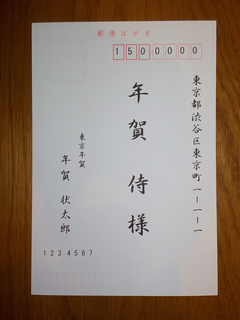 郵便はがき
150-0000
東京都渋谷区東京町一ー一ー一
年賀 侍様
東京年賀
年賀 状太郎
1234567